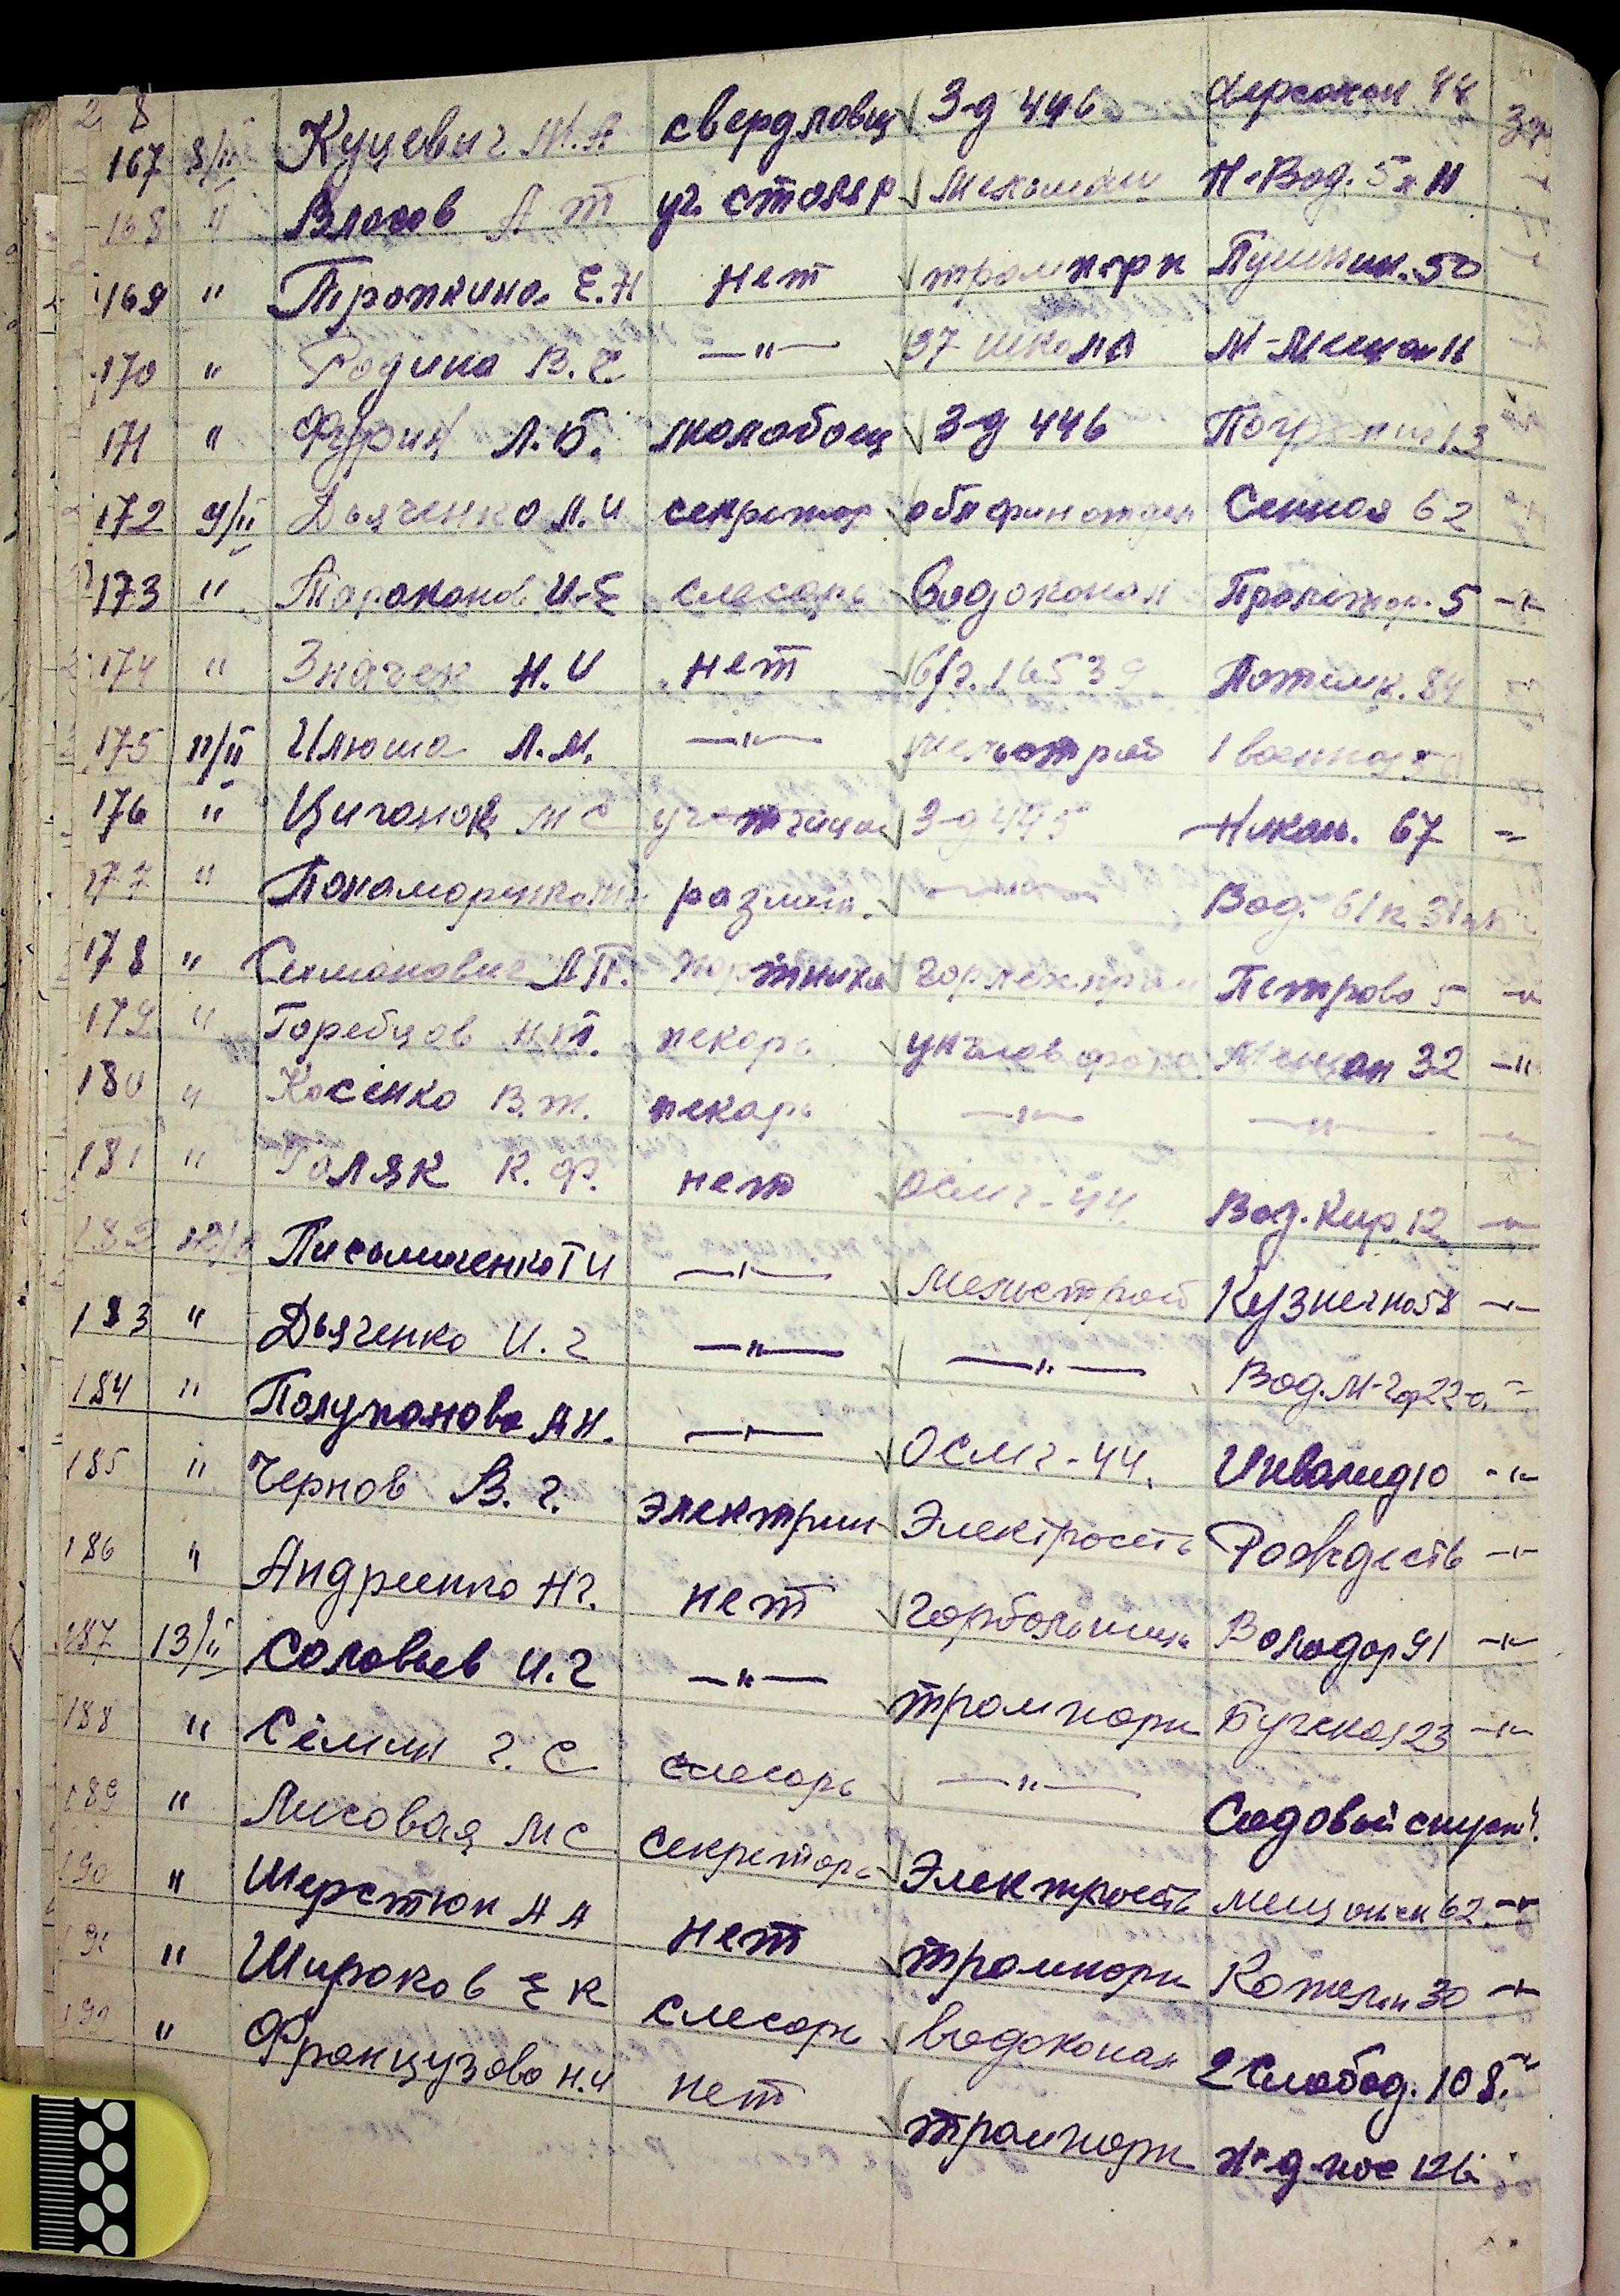 2 8
167 8/II Куцевич М.А свердловщ 3-д 446 Херсонск 44
168 " Власов А Т уч. столяр Н-Вод. 5 к 11
169 " Тропкина Е.Н нет трампарк Пушкин. 50
170 " Родина В.Г. —"— 37 школа М-Мещан 11
171 " Фурин Л.Б. молотобоец 3-д 446
172 9/II Дьяченко Л.И секретар облфинотдел Сенная 62
173 " Тараканов И.Е слесарь Водоканал Пролетар. 5 —"—
174 " Значек Н.И нет б/г. 16539 Потемк. 84
175 11/II Илюша Л.М. —"— мельстрой 1 военная
176 " Циганок М С 3-д 445 Никол. 67 "
177 " Понаморенко размет. —"— Вод. 61 к 31
178 " Семанович А.П. портниха горлегпром Петрова 5 —"
179 " Горебцов Н.П. пекарь Мещан 32 —"
180 " Косенко В.Т. пекарь —"— —"— —"
181 " Голяк К.Ф. нет ОСМЧ-44. Вод. Кир. 12 —"—
182 12/II Письмиченко Т И —"— Мельстрой Кузнечна 58 —"—
183 " Дьяченко И.Г —"— —"— Вод. М-Гор 22-а. "
184 " Полупанова А Н. —"— ОСМЧ-44. Инвалид 10 —"—
185 " Чернов В.Г. электрик Электросеть Рождеств —"—
186 " Андреенко Н Г. нет Горбольница Володар 91 —"—
187 13/II Соловьев И.Г —"— трампарк Бугская 23 —"—
188 " Семин Г.С слесарь —"— Садовый спуск 4.
189 " Лисовая М С секретарь Электросеть Мещанск 62. —"—
190 " Шерстюк А А нет трампарк Котельн 30 —"—
191 " Широков Е К слесарь водоканал 2 Слобод. 108. "
192 " Французова Н.И нет трампарк Ж-д пос 126